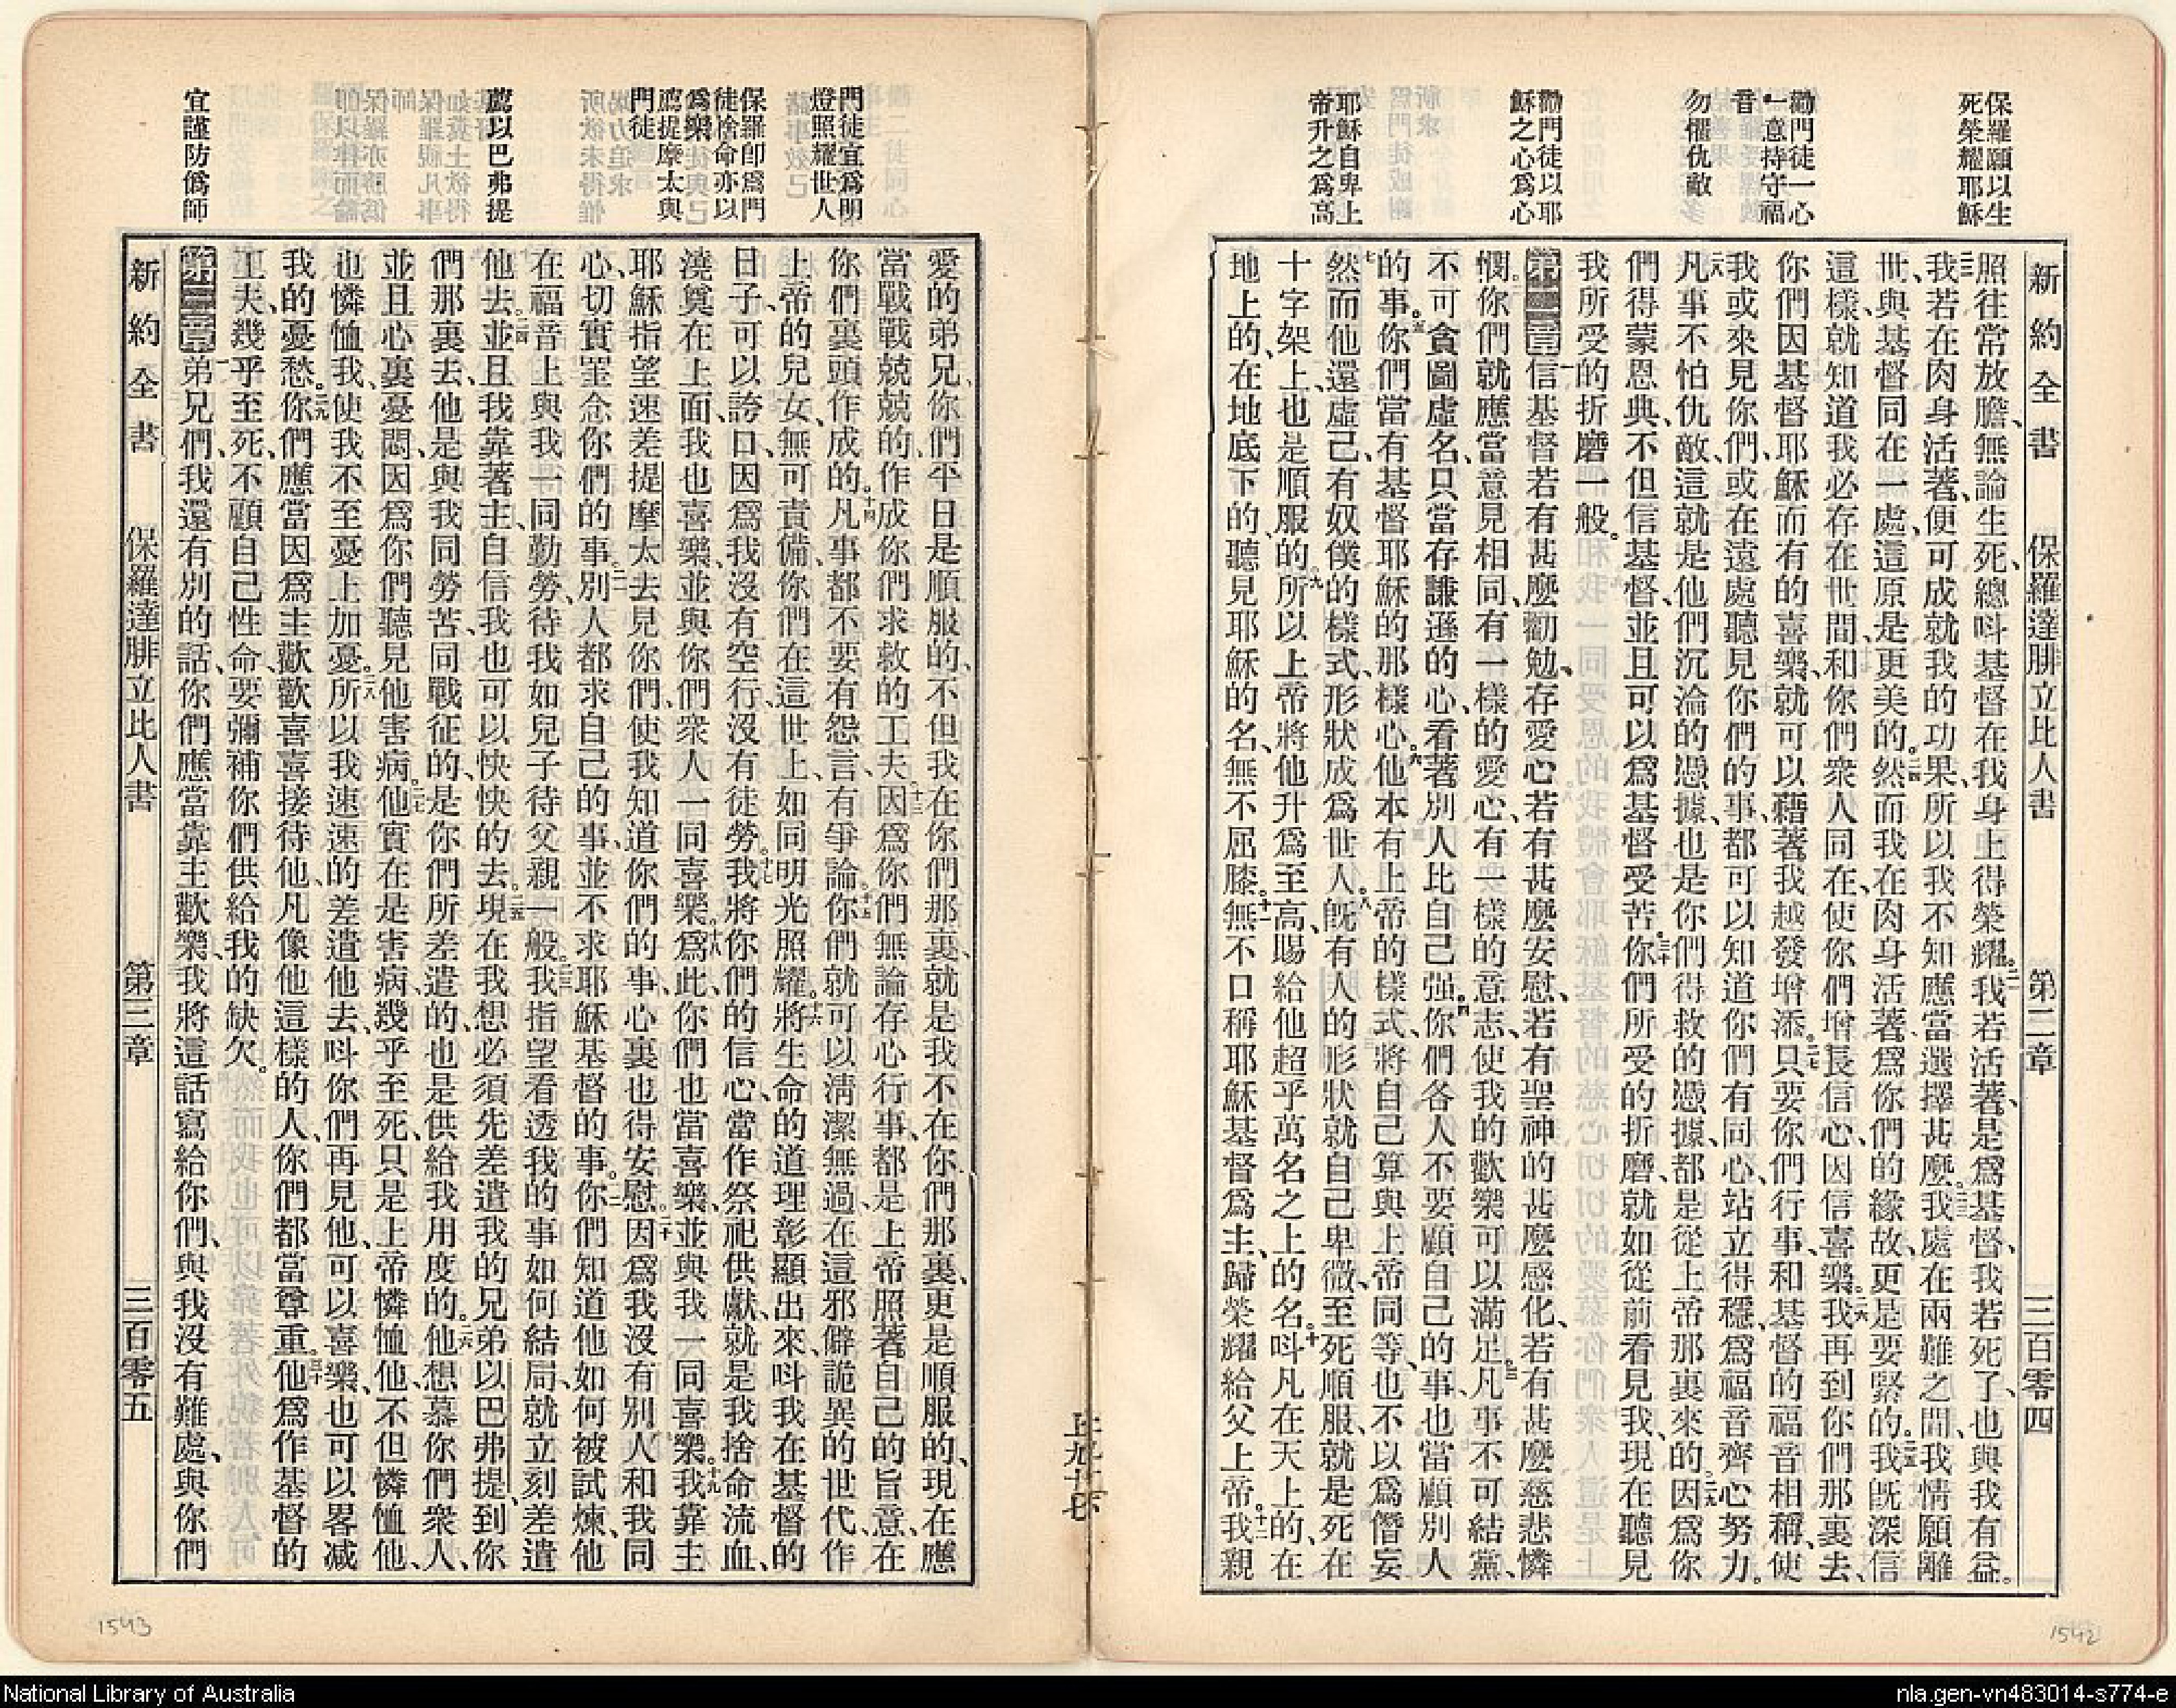 新約全書 保羅達腓立比人書 第二章 三百零四
保羅願以生
死榮耀耶穌
勸門徒一心
一意持守福
音
勿懼仇敵
勸門徒以耶
穌之心爲心
耶穌自卑上
帝升之爲高
照往常放膽、無論生死、總呌基督在我身上得榮耀。二一我若活著、是爲基督、我若死了、也與我有益。
二二我若在肉身活著、便可成就我的功果、所以我不知應當選擇甚麼。二三我處在兩難之間、我情願離
世、與基督同在一處、這原是更美的。二四然而我在肉身活著、爲你們的緣故、更是要緊的。二五我旣深信
這樣、就知道我必存在世間、和你們衆人同在、使你們增長信心、因信喜樂。二六我再到你們那裏去、
你們因基督耶穌而有的喜樂、就可以藉著我越發增添。二七只要你們行事、和基督的福音相稱、使
我或來見你們、或在遠處聽見你們的事、都可以知道你們有同心站立得穩、爲福音齊心努力。
二八凡事不怕仇敵、這就是他們沉淪的憑據、也是你們得救的憑據、都是從上帝那裏來的。二九因爲你
們得蒙恩典、不但信基督、並且可以爲基督受苦。三十你們所受的折磨、就如從前看見我、現在聽見
我所受的折磨一般。
第二章一信基督若有甚麼勸勉、存愛心若有甚麼安慰、若有聖神的甚麼感化、若有甚麼慈悲憐
憫、二你們就應當意見相同、有一樣的愛心、有一樣的意志、使我的歡樂可以滿足。三凡事不可結黨、
不可貪圖虛名、只當存謙遜的心、看著別人比自己强。四你們各人不要顧自己的事、也當顧別人
的事。五你們當有基督耶穌的那樣心。六他本有上帝的樣式、將自己算與上帝同等、也不以爲僭妄、
七然而他還虛己、有奴僕的樣式、形狀成爲世人。八旣有人的形狀、就自己卑微、至死順服、就是死在
十字架上、也是順服的。九所以上帝將他升爲至高、賜給他超乎萬名之上的名。十呌凡在天上的、在
地上的、在地底下的、聽見耶穌的名、無不屈膝。十一無不口稱耶穌基督爲主、歸榮耀給父上帝。十二我親
上九十七
門徒宜爲明
燈照耀世人
保羅卽爲門
徒捨命亦以
爲樂
薦提摩太與
門徒
薦以巴弗提
宜謹防僞師
愛的弟兄、你們平日是順服的、不但我在你們那裏、就是我不在你們那裏、更是順服的、現在應
當戰戰兢兢的、作成你們求救的工夫、十三因爲你們無論存心行事、都是上帝照著自己的旨意、在
你們裏頭作成的。十四凡事都不要有怨言、有爭論。十五你們就可以淸潔無過、在這邪僻詭異的世代、作
上帝的兒女、無可責備、你們在這世上、如同明光照耀。十六將生命的道理彰顯出來、呌我在基督的
日子、可以誇口、因爲我沒有空行、沒有徒勞。十七我將你們的信心、當作祭祀供獻、就是我捨命流血、
澆奠在上面、我也喜樂、並與你們衆人一同喜樂。十八爲此、你們也當喜樂、並與我一同喜樂。十九我靠主
耶穌指望速差提摩太去見你們、使我知道你們的事、心裏也得安慰。二十因爲我沒有別人和我同
心、切實罣念你們的事。二一別人都求自己的事、並不求耶穌基督的事。二二你們知道他如何被試煉、他
在福音上與我一同勤勞、待我如兒子待父親一般。二三我指望看透我的事如何結局、就立刻差遣
他去。二四並且我靠著主、自信我也可以快快的去。二五現在我想必須先差遣我的兄弟以巴弗提、到你
們那裏去、他是與我同勞苦、同戰征的、是你們所差遣的、也是供給我用度的。二六他想慕你們衆人、
並且心裏憂悶、因爲你們聽見他害病。二七他實在是害病、幾乎至死、只是上帝憐恤他、不但憐恤他、
也憐恤我、使我不至憂上加憂。二八所以我速速的差遣他去、呌你們再見他、可以喜樂、也可以畧减
我的憂愁。二九你們應當因爲主、歡歡喜喜接待他、凡像他這樣的人、你們都當尊重。三十他爲作基督的
工夫、幾乎至死、不顧自己性命、要彌補你們供給我的缺欠。
第三章一弟兄們、我還有別的話、你們應當靠主歡樂、我將這話寫給你們、與我沒有難處、與你們
新約全書 保羅達腓立比人書 第三章 三百零五
1543
1542
National Library of Australia
nla.gen-vn483014-s774-e